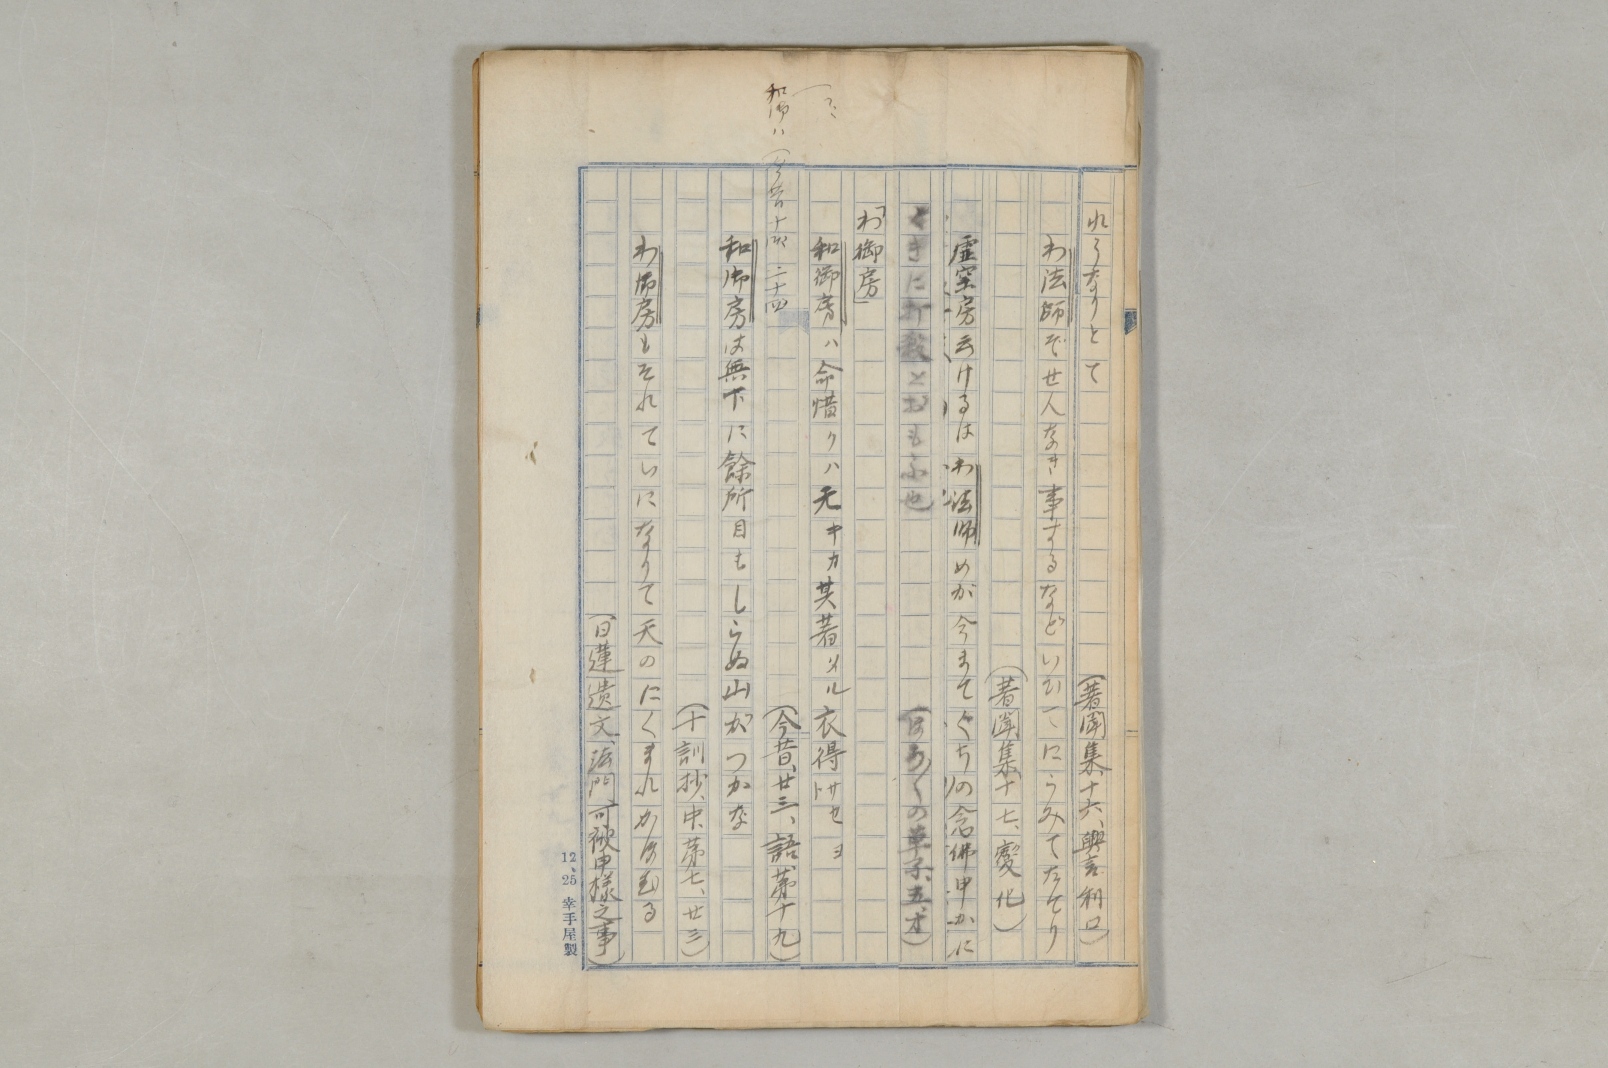 れうなりとて
(著聞集、十六、興言利口)
わ法師ぞせ人なき事するなどいひてにらみてたてり
(著聞集、十七、變化)
虚空房云けるはわ法師めが今まてぐちの念佛申かに
くきに打殺とおもふ也
の草子、五、オ)
「わ御房」
和御房ハ命惜クハ无キカ其著メル衣得サセヨ
(今昔、廿三、語、第十九)
和御ハ
(今昔十
二十四
和御房は無下に餘所目もしらぬ山がつかな
(十訓抄、中、第七、廿三)
わ御房もそれていになりて天のにくまれかほ
(日蓮遺文、法門可被申様之事)
12、25 幸手屋製